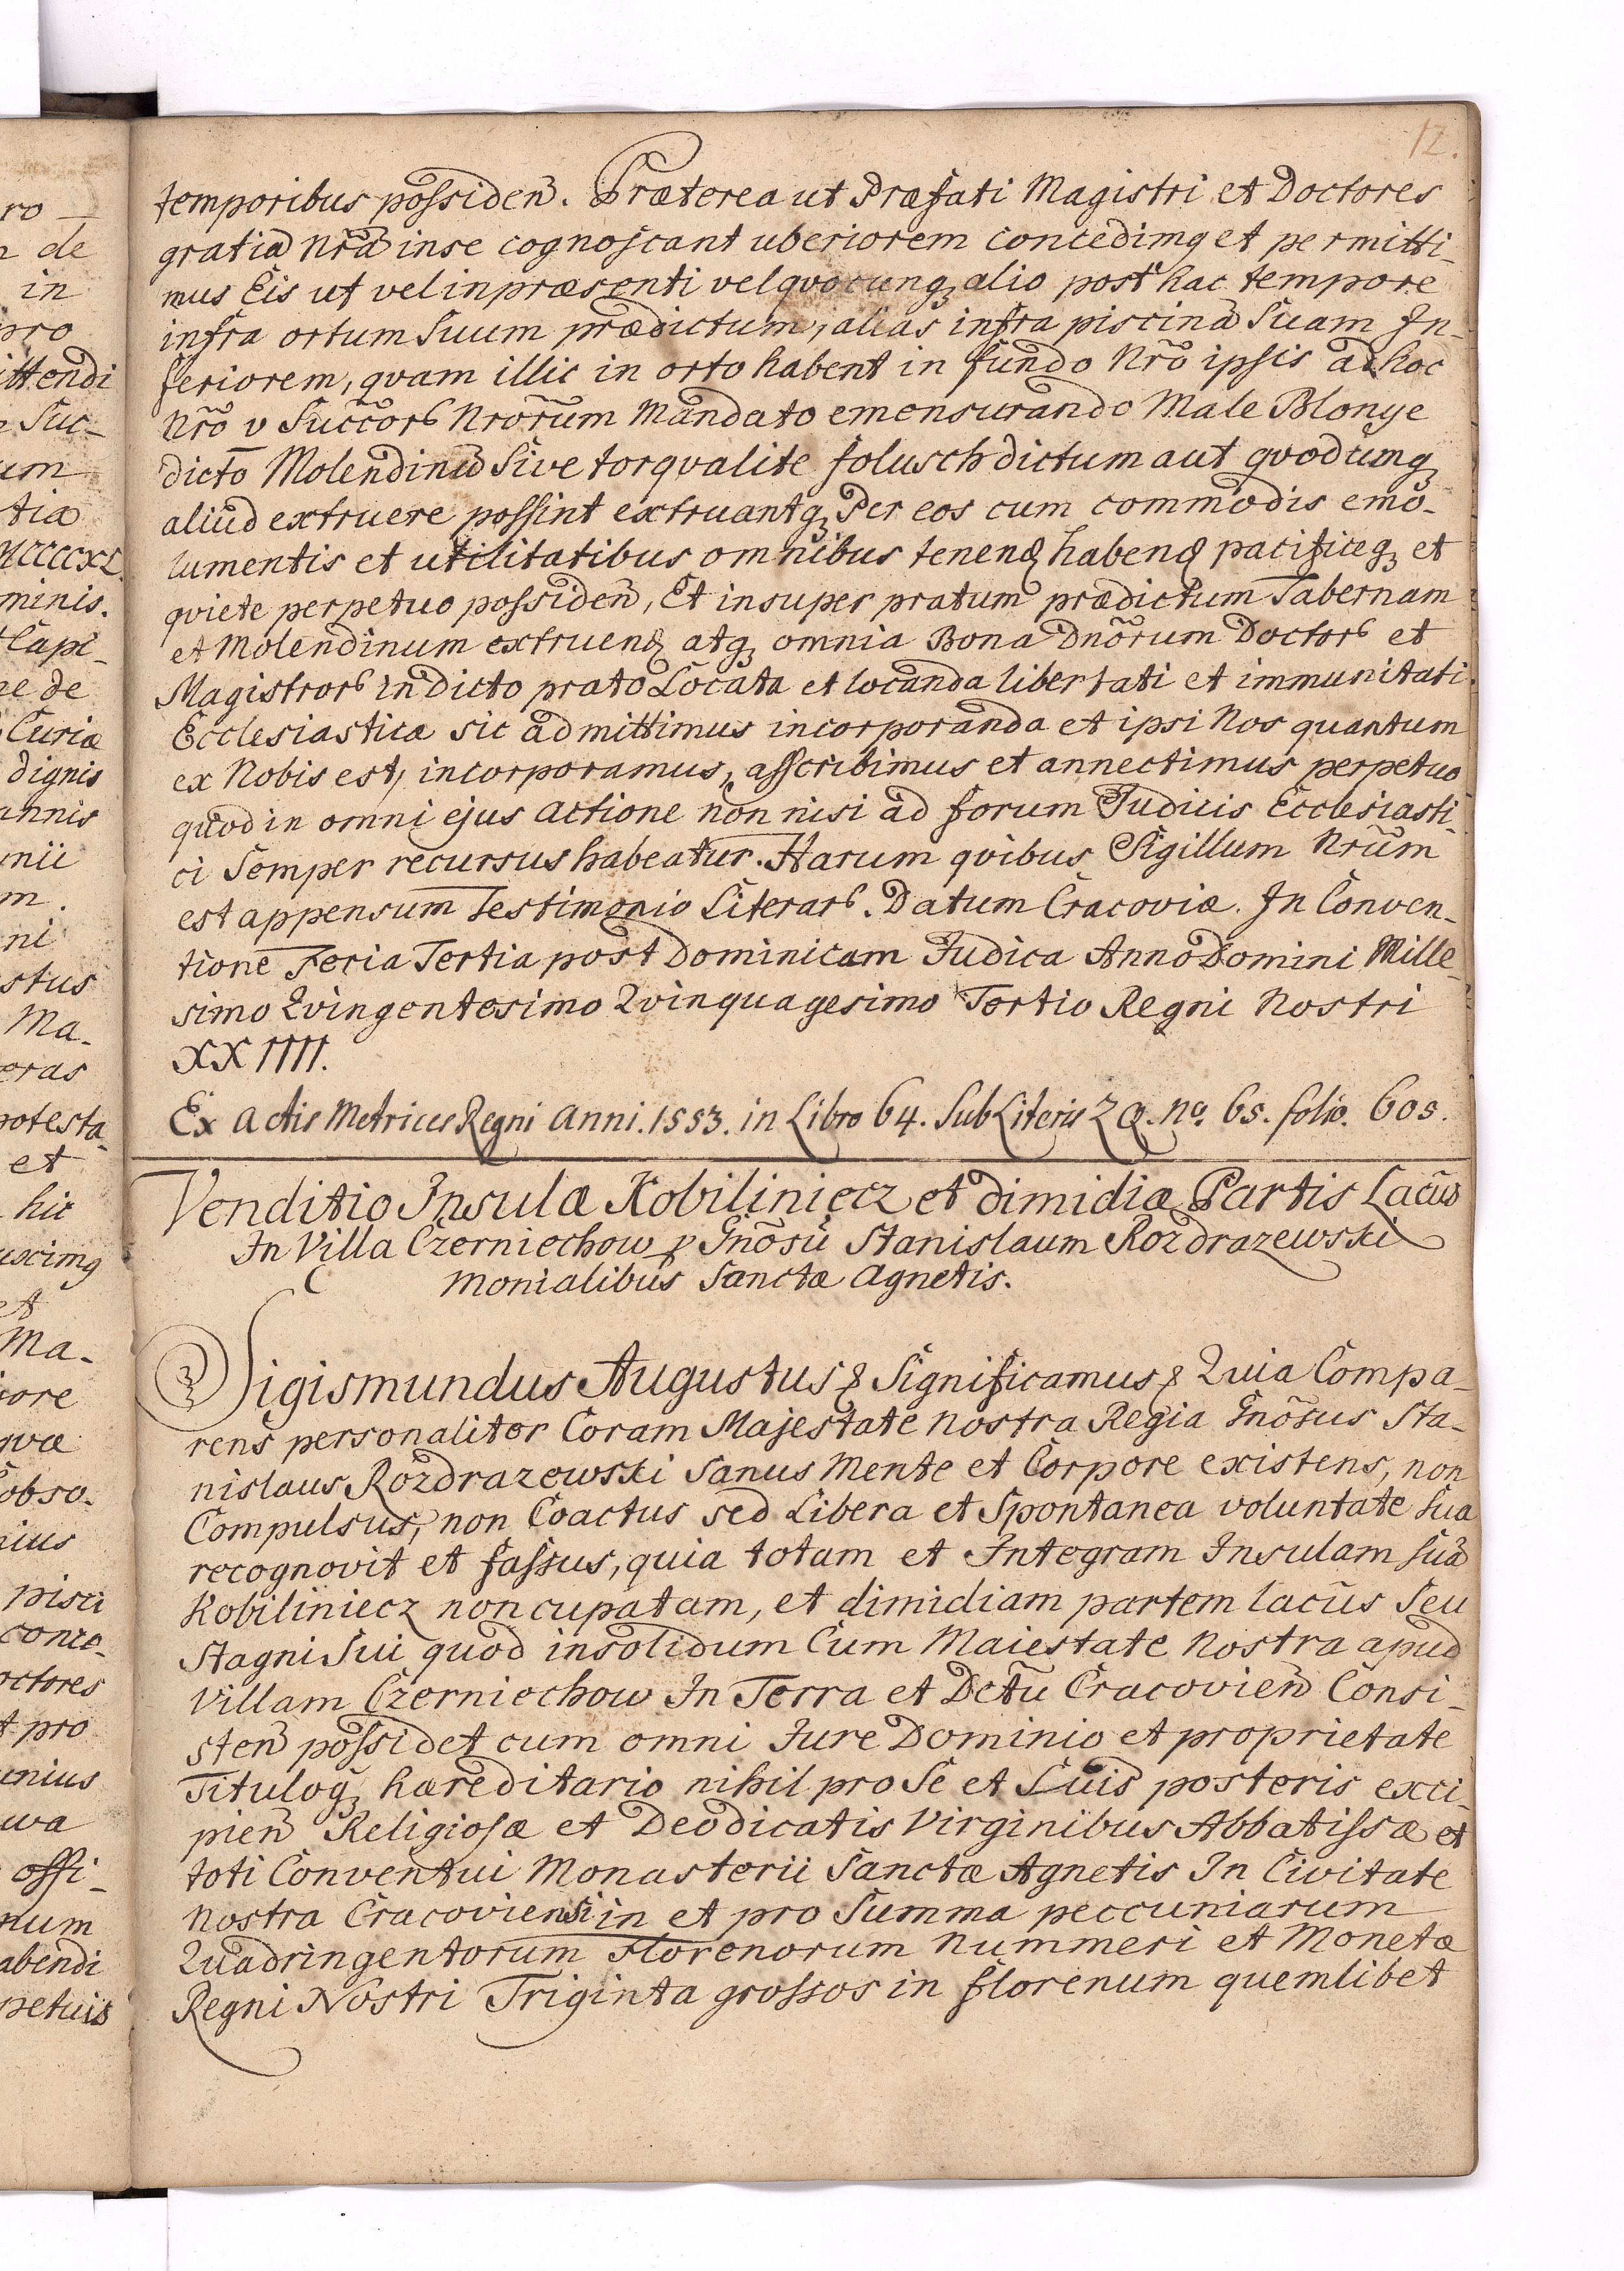 12.
temporibus possiden̄. Præterea ut Præfati Magistri et Doctores
gratiã Nrã inse cognoscant uberiorem concedimq et permitti-
mus Eis ut vel inpræsenti vel qvocunqꝫ alio post hac tempore
infra ortum Suum prædictum, alias infra piscinã Suam In-
feriorem, qvam illic in orto habent in fundo Nrõ ipsis adhoc
Nrõ v Succorꝭ Nrõrum Mandato emensurando Male Blonye
dicto Molendinũ Sive torqvalite folusch dictum aut qvodcunqꝫ
aliud extruere possint extruantqꝫ Per eos cum commodis emo-
lumentis et utilitatibus omnibus tenenꝺ habenꝺ pacificeqꝫ et
qviete perpetuo possiden̄, Et insuper pratum prædictum Tabernam
et Molendinum extruenꝺ atqꝫ omnia Bona Dnõrum Doctorꝭ et
Magistrorꝭ in dicto prato Locata et locanda libertati et immunitati
Ecclesiasticæ sic admittimus incorporanda et ipsi Nos quantum
ex Nobis est, incorporamus, asscribimus et annectimus perpetuo
quod in omni ejus actione non nisi ad forum Judicis Ecclesiasti-
ci Semper recursus habeatur. Harum qvibus Sigillum Nrũm
est appensum Testimonio Literarꝭ. Datum Cracoviæ. In Conven-
tione Feria Tertia post Dominicam Judica Anno Domini Mille-
simo Qvingentesimo Qvinquagesimo Tertio Regni Nostri
XXIIII.
Ex Actis Metrices Regni Anni. 1553. in Libro 64. Sub Literis Z Q. No. 65. folio. 605.
Venditio Insulæ Kobiliniecz et dimidiæ Partis Lacũs
In Villa Czerniechow p Gnõsũ Stanislaum Rozdrazewski
Monialibus Sanctæ Agnetis.
Sigismundus Augustus & Significamus & Quia Compa-
rens personaliter Coram Majestate nostra Regia Gnõsus Sta-
nislaus Rozdrazewski Sanus Mente et Corpore existens, non
Compulsus, non Coactus sed Libera et Spontanea voluntate sua
recognovit et fassus, quia totam et Integram Insulam suã
Kobiliniecz noncupatam, et dimidiam partem lacũs Seu
Stagni Sui quod insolidum Cum Maiestate Nostra apud
Villam Czerniechow In Terra et Dctũ Cracovien̄ Consi-
sten̄ possidet cum omni Jure Dominio et proprietate
Tituloqꝫ hæreditario nihil pro Se et Suis posteris exci-
pien̄ Religiosæ et Deodicatis Virginibus Abbatissæ et
toti Conventui Monasterii Sanctæ Agnetis In Civitate
Nostra Cracoviensi in et pro Summa peccuniarum
Quadringentorum Florenorum Nummeri et Monetæ
Regni Nostri Triginta grossos in florenum quemlibet